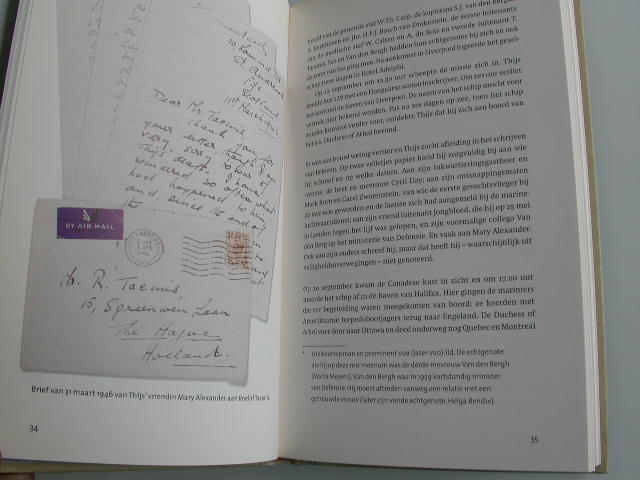 St Andrews
Fife
Scotland
31st March 1946
Dear Mr Taconis
Thank you for
your letter though I am
very sorry to hear of
Thijs death. I have
wondered so often what
had happened to him
and, since the end of
the
BY AIR MAIL
Mr. R. Taconis
15, Spreeuwen Laan
The Hague
Holland.
Brief van 31 maart 1946 van Thijs' vriendin Mary Alexander aan Roelof Taconis.
34
Beeld van de gemeide staf W.Th. Carp, de kapiteins S.J. van den Bergh,
A. Kerkhoven en jhr. H.P.J. Bosch van Drakestein, de eerste luitenant
van de medische staf W. Calten en A. du Bois en tweede luitenant T.
Taconis. Ses en Van den Bergh hadden hun echtgenotes bij zich en ook
de zoon van Ses ging mee. Na aankomst in Liverpool logeerde het gezel-
schap twee dagen in Hotel Adelphi.
Op 11 september om 12.30 uur scheepte de missie zich in. Thijs
deelde hut 129 met een Hongaarse scenarioschrijver. Om zes uur verliet
het konvooi de haven van Liverpool. De naam van het schip mocht voor
vertrek niet bekend worden. Pas na zes dagen op zee, toen het schip
zonder konvooi verder voer, ontdekte Thijs dat hij zich aan boord van
het s.s. Duchess of Athol bevond.
Er was aan boord weinig vertier en Thijs zocht afleiding in het schrijven
van brieven. Op twee velletjes papier hield hij zorgvuldig bij aan wie
hij schreef en op welke datum. Aan zijn inkwartieringsgastheer en
vrouw, de heer en mevrouw Cyril Day; aan zijn ontsnappingsmaten
Mark Born en Carel Zwarenstein, van wie de eerste gevechtsvlieger bij
de RAF was geworden en de laatste zich had aangemeld bij de marine-
luchtvaartdienst; aan zijn vriend luitenant Jongbloed, die hij op 25 mei
in Londen tegen het lijf was gelopen, en zijn voormalige collega Van
den Berg op het ministerie van Defensie. En vaak aan Mary Alexander.
Ook aan zijn ouders schreef hij, maar dat heeft hij – waarschijnlijk uit
veiligheidsoverwegingen – niet genoteerd.
Op 20 september kwam de Canadese kust in zicht en om 17.00 uur
meerde het schip af in de haven van Halifax. Hier gingen de mariniers
die ter begeleiding waren meegekomen van boord; ze keerden met
Amerikaanse torpedobootjagers terug naar Engeland. De Duchess of
Athol voer door naar Ottawa en deed onderweg nog Quebec en Montreal
* Unilevertopman en prominent VDB (later VVD)-lid. De echtgenote
die hij op deze reis meenam was de derde mevrouw Van den Bergh
(Maria Meyers). Van den Bergh was in 1959 kortstondig minister
van Defensie. Hij moest aftreden vanwege een relatie met een
getrouwde vrouw (later zijn vierde echtgenote, Helga Bendix).
35